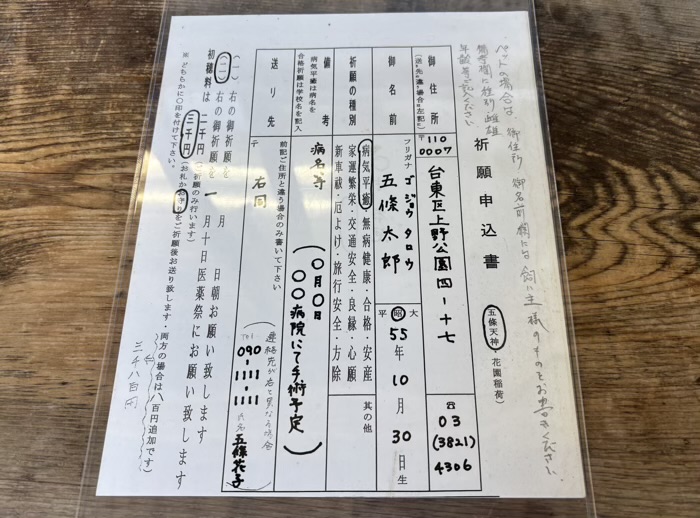 ペットの場合は 御住所 御名前欄には 飼い主様のものをお書きください
備考欄に種別 雌雄
年齢等ご記入ください
祈願申込書
五條天神・花園稲荷)
御住所
(送り先と違う場合は左記に)
〒110
0007
台東区上野公園四-十七
☎
03
(3821)
4306
御名前
フリガナ ゴジョウタロウ
五條太郎
大
昭
平
55年10月30日生
祈願の種別
病気平癒・無病健康・合格・安産
家運繁栄・交通安全・良縁・心願
新車祓・厄よけ・旅行安全・方除
其の他
備考
病気平癒は病名を
合格祈願は学校名を記入
病名等
(〇月〇日
〇〇病院にて手術予定)
送り先
前記ご住所と違う場合のみ書いて下さい
〒
右同
(連絡先が右と異なる場合
TEL
090-
1111-
1111
氏名
五條花子
(一)右の御祈願を 月 日朝お願い致します
(二)右の御祈願を 一月十日医薬祭にお願い致します
初穂料は 二千円(ご祈願のみ行います)
三千円(お札かお守りをご祈願後お送り致します・両方の場合は八百円追加です)
※ どちらかに〇印を付けて下さい。
三千八百円